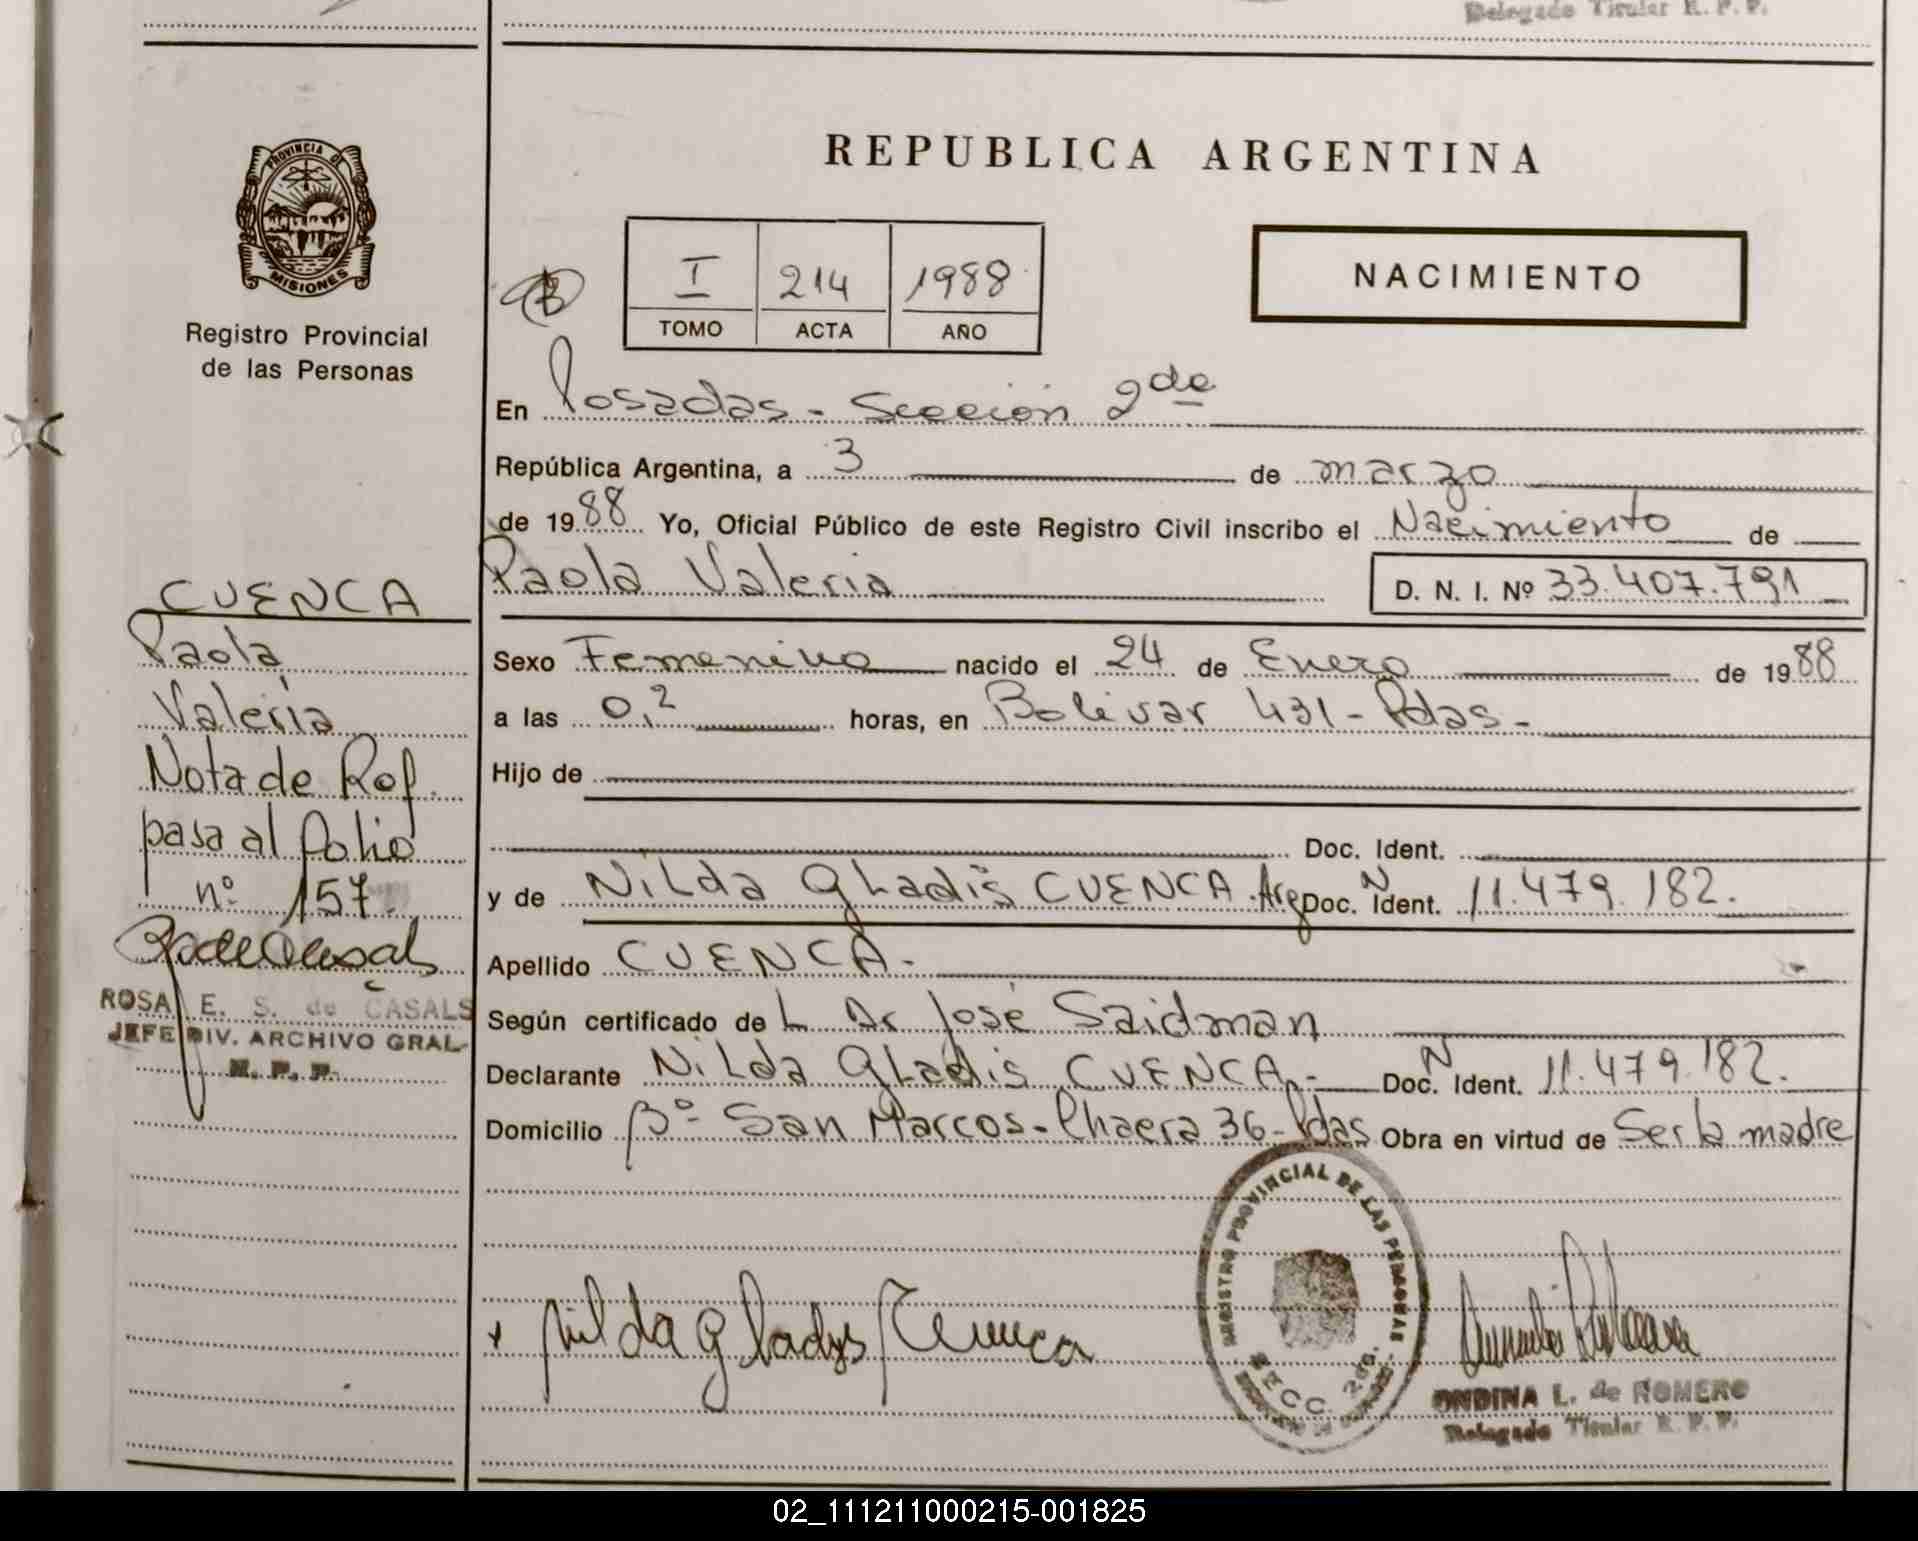 Delegado Titular R. P. P.
PROVINCIA DE
MISIONES
Registro Provincial
de las Personas
REPUBLICA ARGENTINA
I 214 1988
TOMO ACTA AÑO
NACIMIENTO
En Posadas - Sección 2da
República Argentina, a 3 de marzo
de 1988 Yo, Oficial Público de este Registro Civil inscribo el Nacimiento de
Paola Valeria D. N. I. Nº 33.407.791
Sexo Femenino nacido el 24 de Enero de 1988
a las 0,2 horas, en Bolivar 431 - Pdas -
Hijo de
Doc. Ident.
y de Nilda Gladis CUENCA. Arg Doc. N Ident. 11.479.182.
Apellido CUENCA.-
Según certificado de L Dr José Saidman
Declarante Nilda Gladis CUENCA.- Doc. N Ident. 11.479.182.
Domicilio Bº San Marcos - Chacra 36 - Pdas Obra en virtud de Ser la madre
CUENCA
Paola
Valeria
Nota de Ref.
pasa al folio
nº 157.
ROSA E. S. de CASALS
JEFE DIV. ARCHIVO GRAL-
R. P. P.
REGISTRO PROVINCIAL DE LAS PERSONAS
SECC. 2da.
x Nilda Gladys Cuenca
ONDINA L. de ROMERO
Delegado Titular R. P. P.
02_111211000215-001825